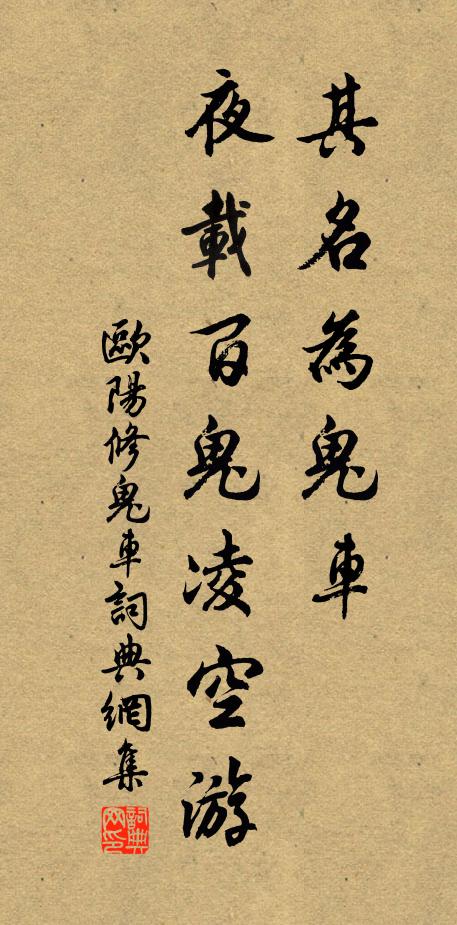 其名為鬼車
夜載百鬼凌空游
歐陽修鬼車詞典網集
詞典网印